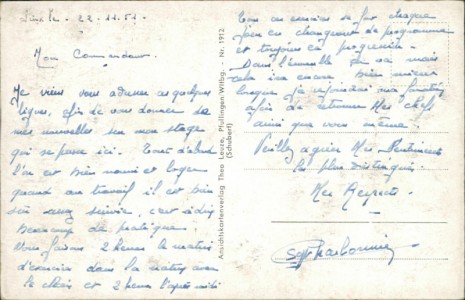 22.11.51.
Mon Commandant.
Je viens vous adresser quelques
lignes, afin de vous donner de
mes nouvelles sur mon stage
qui se passe ici. Tout d'abord
l'on est bien nourri et loger
quand au travail il est bien
c'est à dire
Beaucoup de pratique.
Nous faisons 2 heures le matin
d'exercice dans la nature avec
le char et 2 heures l'après midi
Ansichtskartenverlag Theo Leuze, Pfullingen/Wttbg. - Nr. 1913
(Schubert)
Tous ces exercices se fait chaque
jour en changement de programme
et toujours en progressif.
Dans l'ensemble on va mais
cela ira encore bien mieux
lorsque je rejoindrai
afin de retrouver Mes chefs
ainsi que vous même.
Veuillez agréer Mes Sentiments
les plus Distingués.
Mes Respects.
Sgt Charbonnier